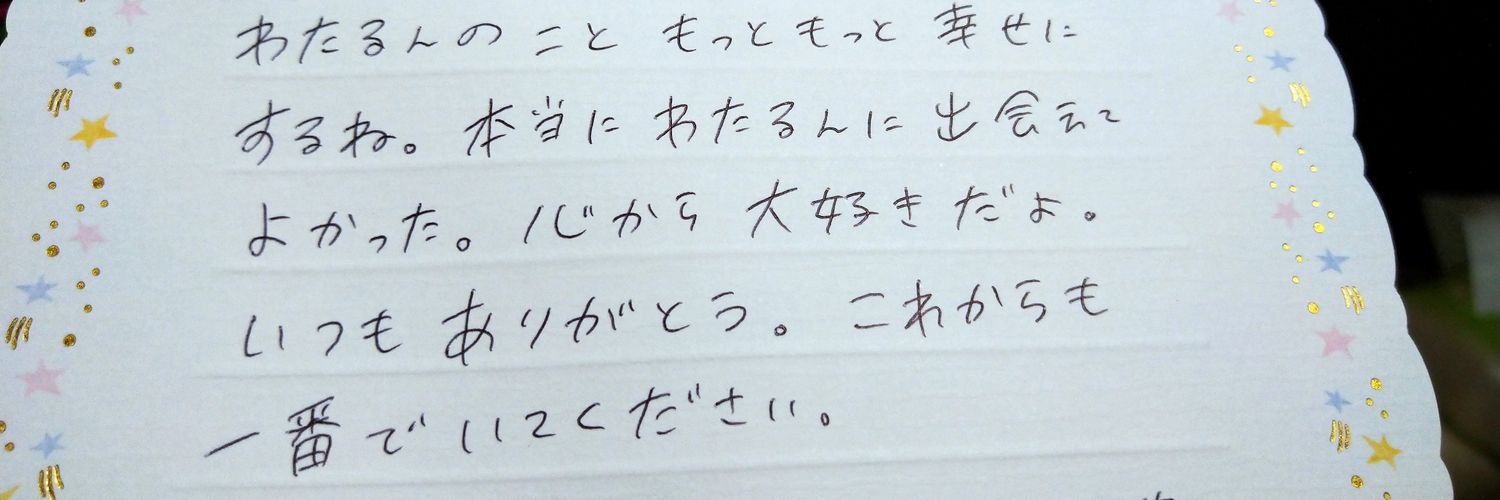 わたるんの こと もっともっと 幸せに
するね。本当に わたるんに 出会えて
よかった。心から 大好きだよ。
いつも ありがとう。これからも
一番で いてください。